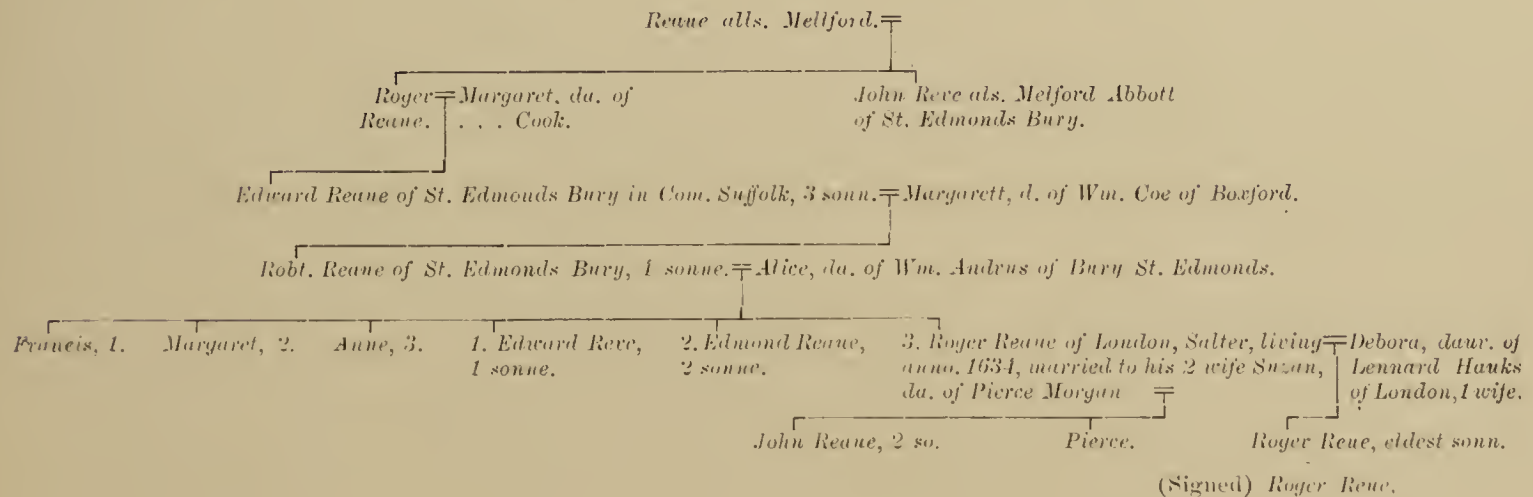 Reaue alls. Mellford.
Roger Margaret, da. of
Reaue. . . . Cook.
John Reve als. Melford Abbott
of St. Edmonds Bury.
Edward Reaue of St. Edmonds Bury in Com. Suffolk, 3 sonn. Margarett, d. of Wm. Coe of Boxford.
Robt. Reaue of St. Edmonds Bury, 1 sonne. Alice, da. of Wm. Andrus of Bury St. Edmonds.
Francis, 1. Margaret, 2. Anne, 3.
1. Edward Reve,
1 sonne.
2. Edmond Reaue,
2 sonne.
3. Roger Reaue of London, Salter, living
anno. 1634, married to his 2 wife Suzan,
da. of Pierce Morgan
Debora, daur. of
Lennard Hauks
of London, 1 wife.
John Reaue, 2 so. Pierce. Roger Reue, eldest sonn.
(Signed) Roger Reue.